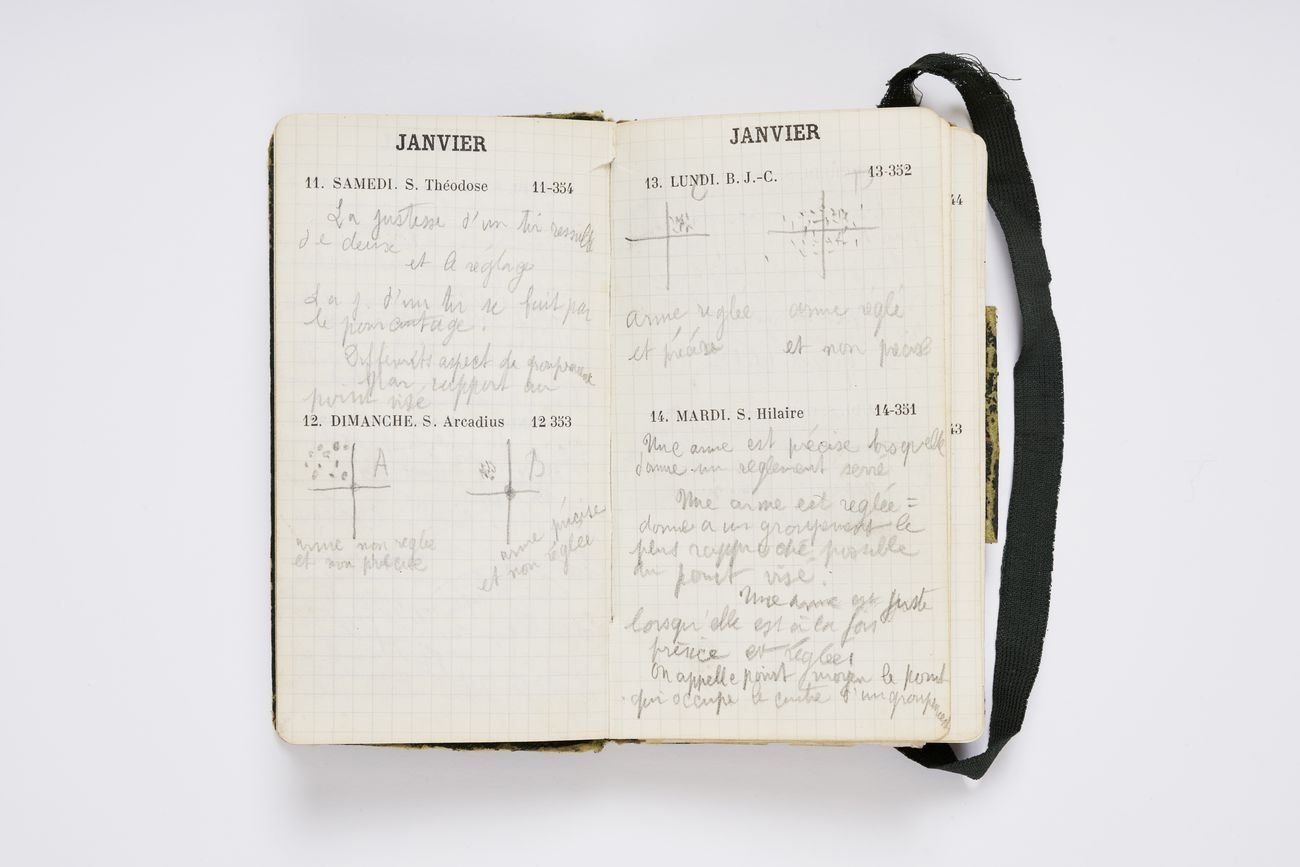 JANVIER
11. SAMEDI. S. Théodose 11-354
La justesse d'un tir resulte
de deux
et la réglage
La j. d'un tir se fait par
le pourcentage.
Différents aspect de groupement
par rapport au
point visé
12. DIMANCHE. S. Arcadius 12 353
A
B
arme non reglée
et non précise
arme précise
et non réglée
JANVIER
13. LUNDI. B. J.-C. 13-352
arme reglée
et précise
arme réglé
et non precise
14. MARDI. S. Hilaire 14-351
Une arme est précise lorsquelle
donne un reglement serré
Une arme est reglée =
donne a un groupement le
plus rapproché possible
du point visé.
Une arme est juste
lorsqu'elle est à la fois
précice et réglée
On appelle point moyen le point
qui occupe le centre d'un groupement
44
43